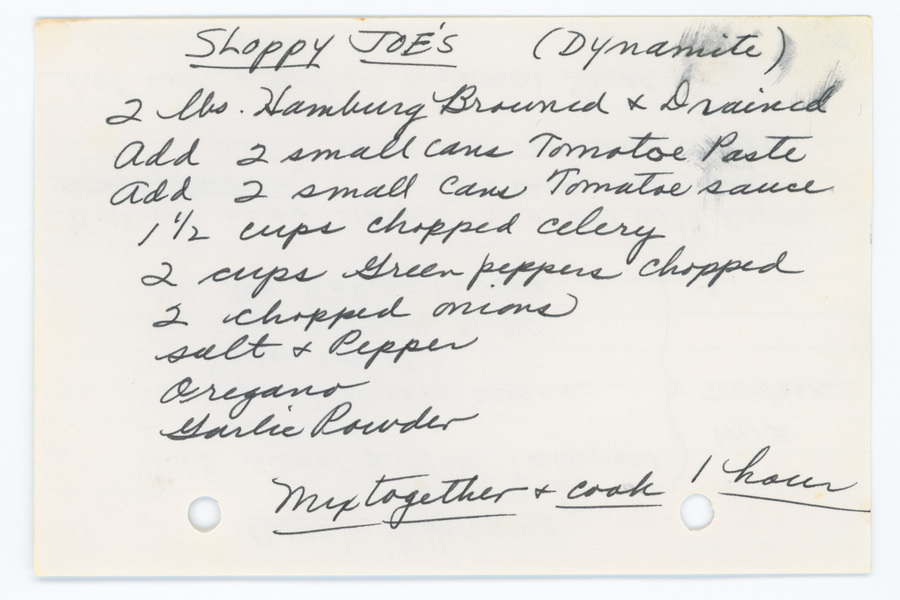 Sloppy JOE'S (Dynamite)
2 lbs. Hamburg Browned & Drained
Add 2 small cans Tomatoe Paste
Add 2 small cans Tomatoe sauce
1 1/2 cups chopped celery
2 cups Green peppers chopped
2 chopped onions
salt & Pepper
Oregano
Garlic Powder
Mix together & cook 1 hour